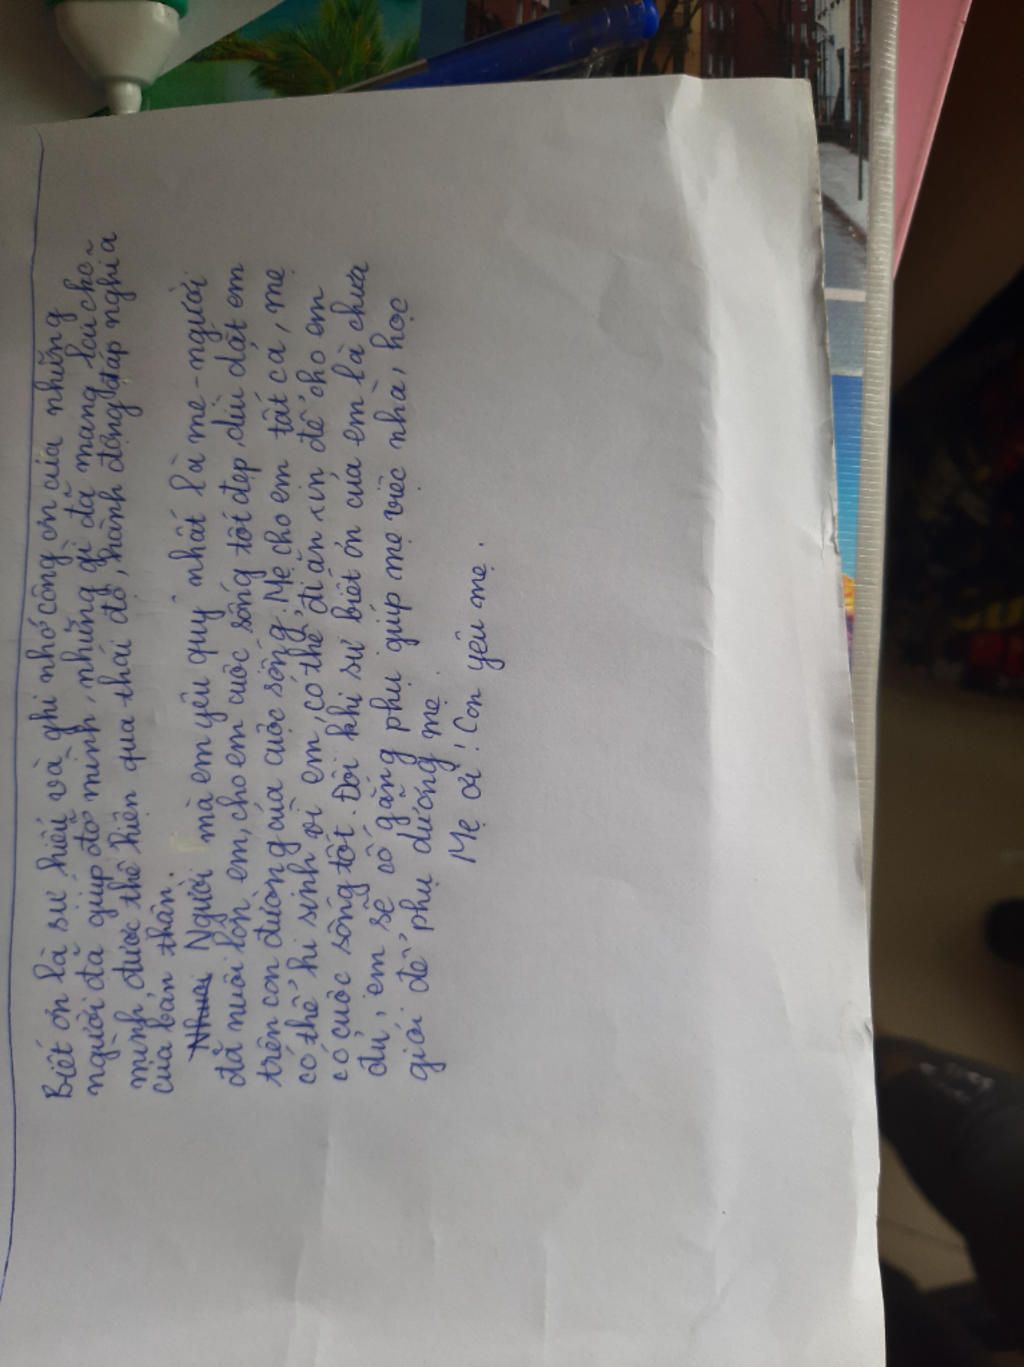 Biết ơn là sự hiểu và ghi nhớ công ơn của những
người đã giúp đỡ mình, những gì đã mang lại cho
mình, được thể hiện qua thái độ, hành động đáp nghĩa
của bản thân.
Người mà em yêu quý nhất là mẹ - người
đã nuôi lớn em, cho em cuộc sống tốt đẹp, dìu dắt em
trên con đường của cuộc sống. Mẹ cho em tất cả, mẹ
có thể hi sinh vì em, có thể đi ăn xin để cho em
có cuộc sống tốt. Đôi khi sự biết ơn của em là chưa
đủ, em sẽ cố gắng phụ giúp mẹ việc nhà, học
giỏi để phụ dưỡng mẹ.
Mẹ ơi! Con yêu mẹ.